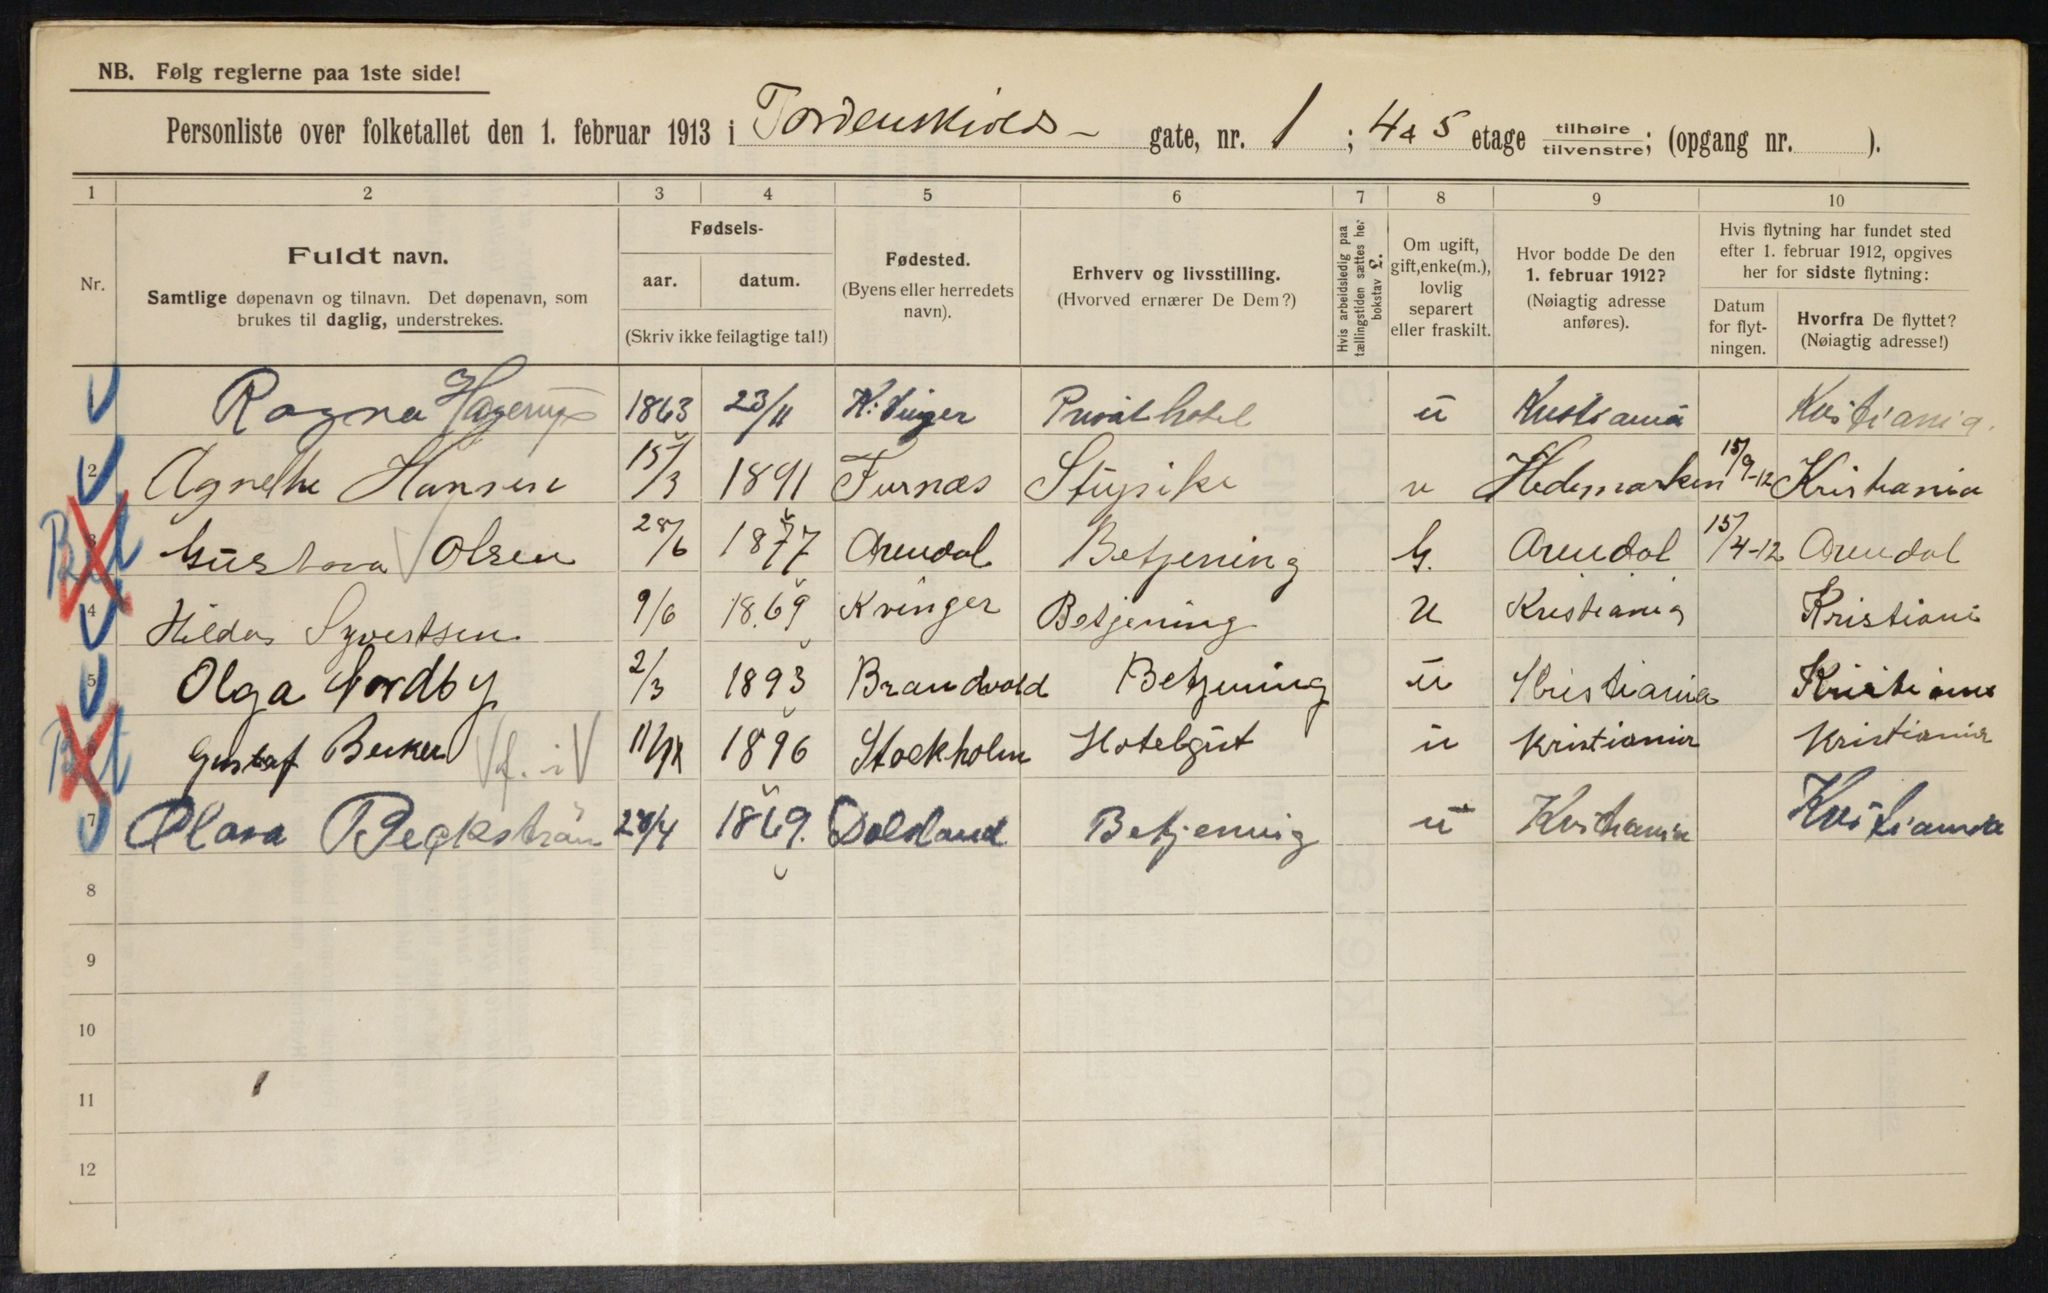 NB. Følg reglerne paa 1ste side!
Personliste over folketallet den 1. februar 1913 i Tordenskiolds gate, nr. 1 ; 4 & 5 etage tilhøire tilvenstre; (opgang nr. ).
1 2 3 4 5 6 7 8 9 10
Nr.
Fuldt navn.
Samtlige døpenavn og tilnavn. Det døpenavn, som
brukes til daglig, understrekes.
Fødsels-
aar. datum.
(Skriv ikke feilagtige tal!)
Fødested.
(Byens eller herredets
navn).
Erhverv og livsstilling.
(Hvorved ernærer De Dem?)
Hvis arbeidsledig paa
tællingstiden sættes her
bokstav L.
Om ugift,
gift, enke(m.),
lovlig
separert
eller fraskilt.
Hvor bodde De den
1. februar 1912?
(Nøiagtig adresse
anføres).
Hvis flytning har fundet sted
efter 1. februar 1912, opgives
her for sidste flytning:
Datum
for flyt-
ningen.
Hvorfra De flyttet?
(Nøiagtig adresse!)
Ragna Hagerup 1863 23/11 K:vinger Privat hotel u Kristiania Kristiania.
2 Agnethe Hansen 15/3 1891 Furnæs Stupike u Hedemarken 15/9-12 Kristiania
3 Gustava Olsen 28/6 1877 Arendal Betjening G. Arendal 15/4-12 Arendal
4 Hilda Syvertsen 9/6 1869 Kvinger Betjening U Kristiania Kristiania
5 Olga Nordby 2/3 1893 Brandvold Betjening u Kristiania Kristiania
6 Gustaf Becker f. i 1896 Stockholm Hotelgut u Kristiania Kristiania
7 Clara Beckström 28/4 1869. Dalsland Betjening u Kristiania Kristiania
8
9
10
11
12